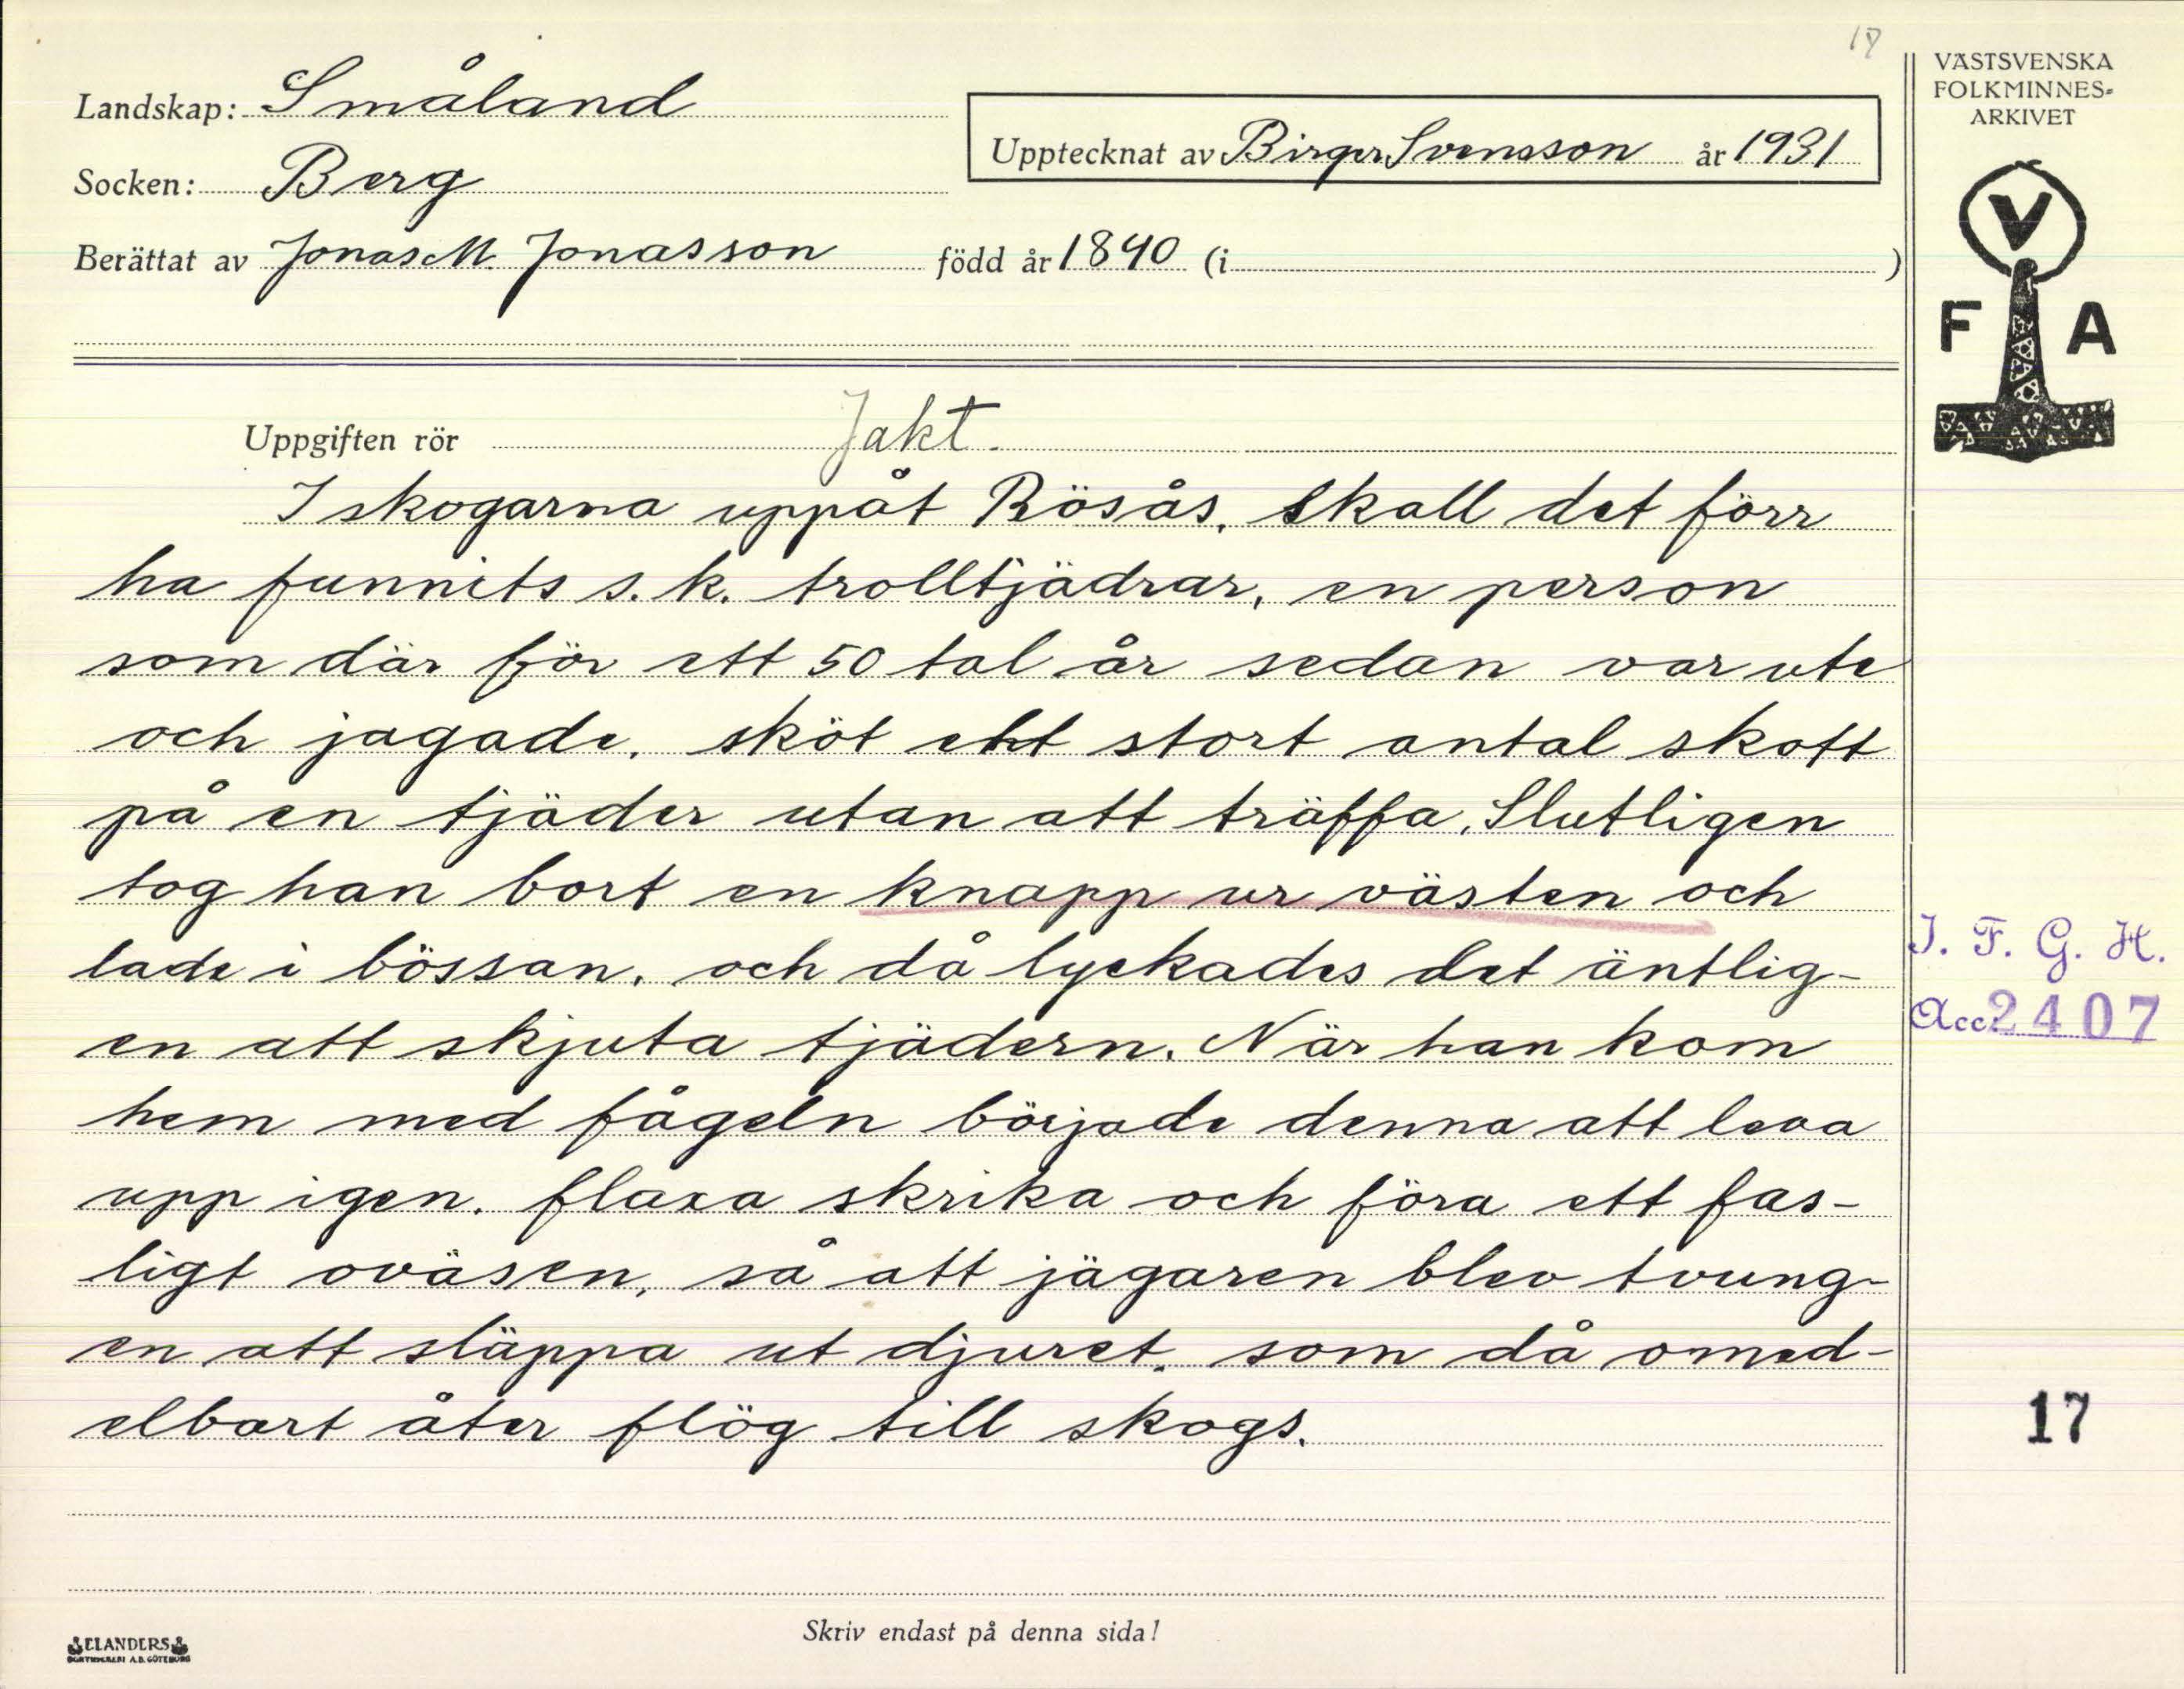 18
Landskap: Småland
Socken: Berg
Upptecknat av Birger Svensson år 1931
Berättat av Jonas M. Jonasson född år 1840 (i )
VÄSTSVENSKA
FOLKMINNES-
ARKIVET
V
F A
Uppgiften rör Jakt.
I skogarna uppåt Rösås, skall det förr
ha funnits s.k. trolltjädrar, en person
som där för ett 50 tal år sedan var ute
och jagade, sköt ett stort antal skott
på en tjäder utan att träffa. Slutligen
tog han bort en knapp ur västen och
lade i bössan, och då lyckades det äntlig-
en att skjuta tjädern. När han kom
hem med fågeln började denna att leva
upp igen, flaxa skrika och föra ett fas-
ligt oväsen, så att jägaren blev tvung-
en att släppa ut djuret, som då omed-
elbart åter flög till skogs.
I. F. G. H.
Acc. 2407
17
Skriv endast på denna sida!
ELANDERS
BOKTRYCKERI A.B. GÖTEBORG